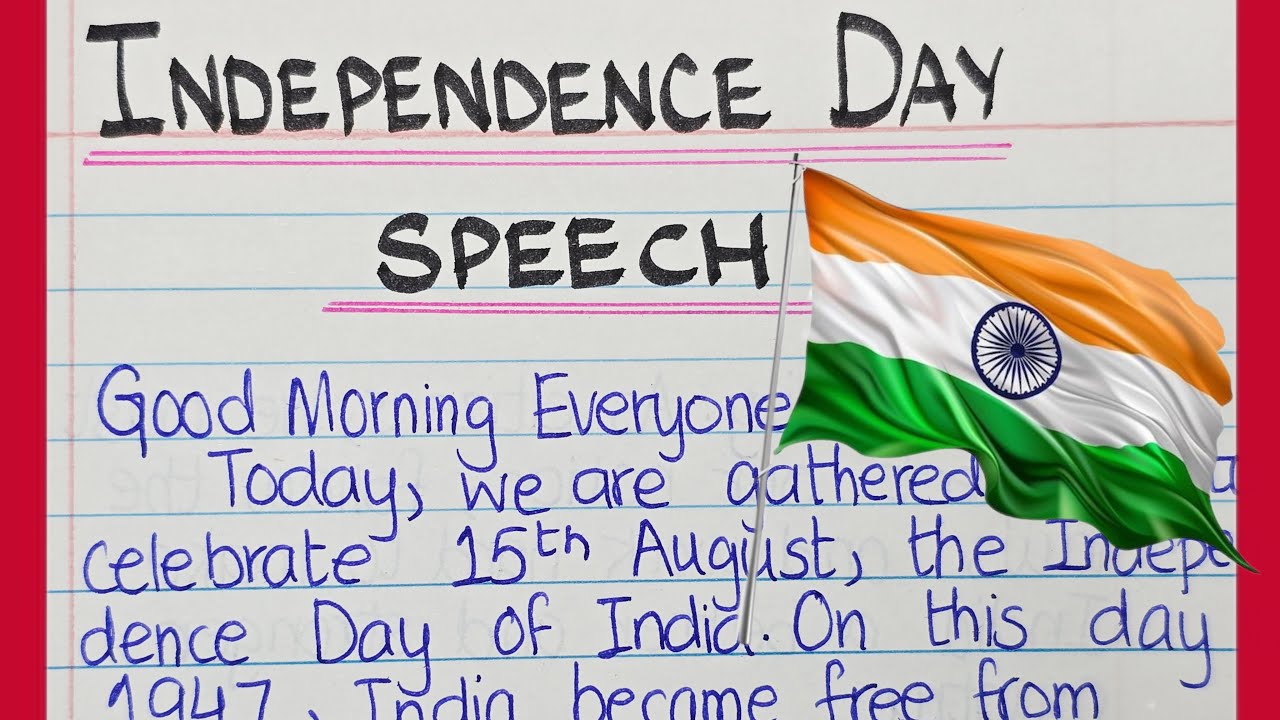 INDEPENDENCE DAY
SPEECH
Good Morning Everyone
Today, we are gathered
celebrate 15th August, the Indepe
dence Day of India. On this day
1947, India became free from